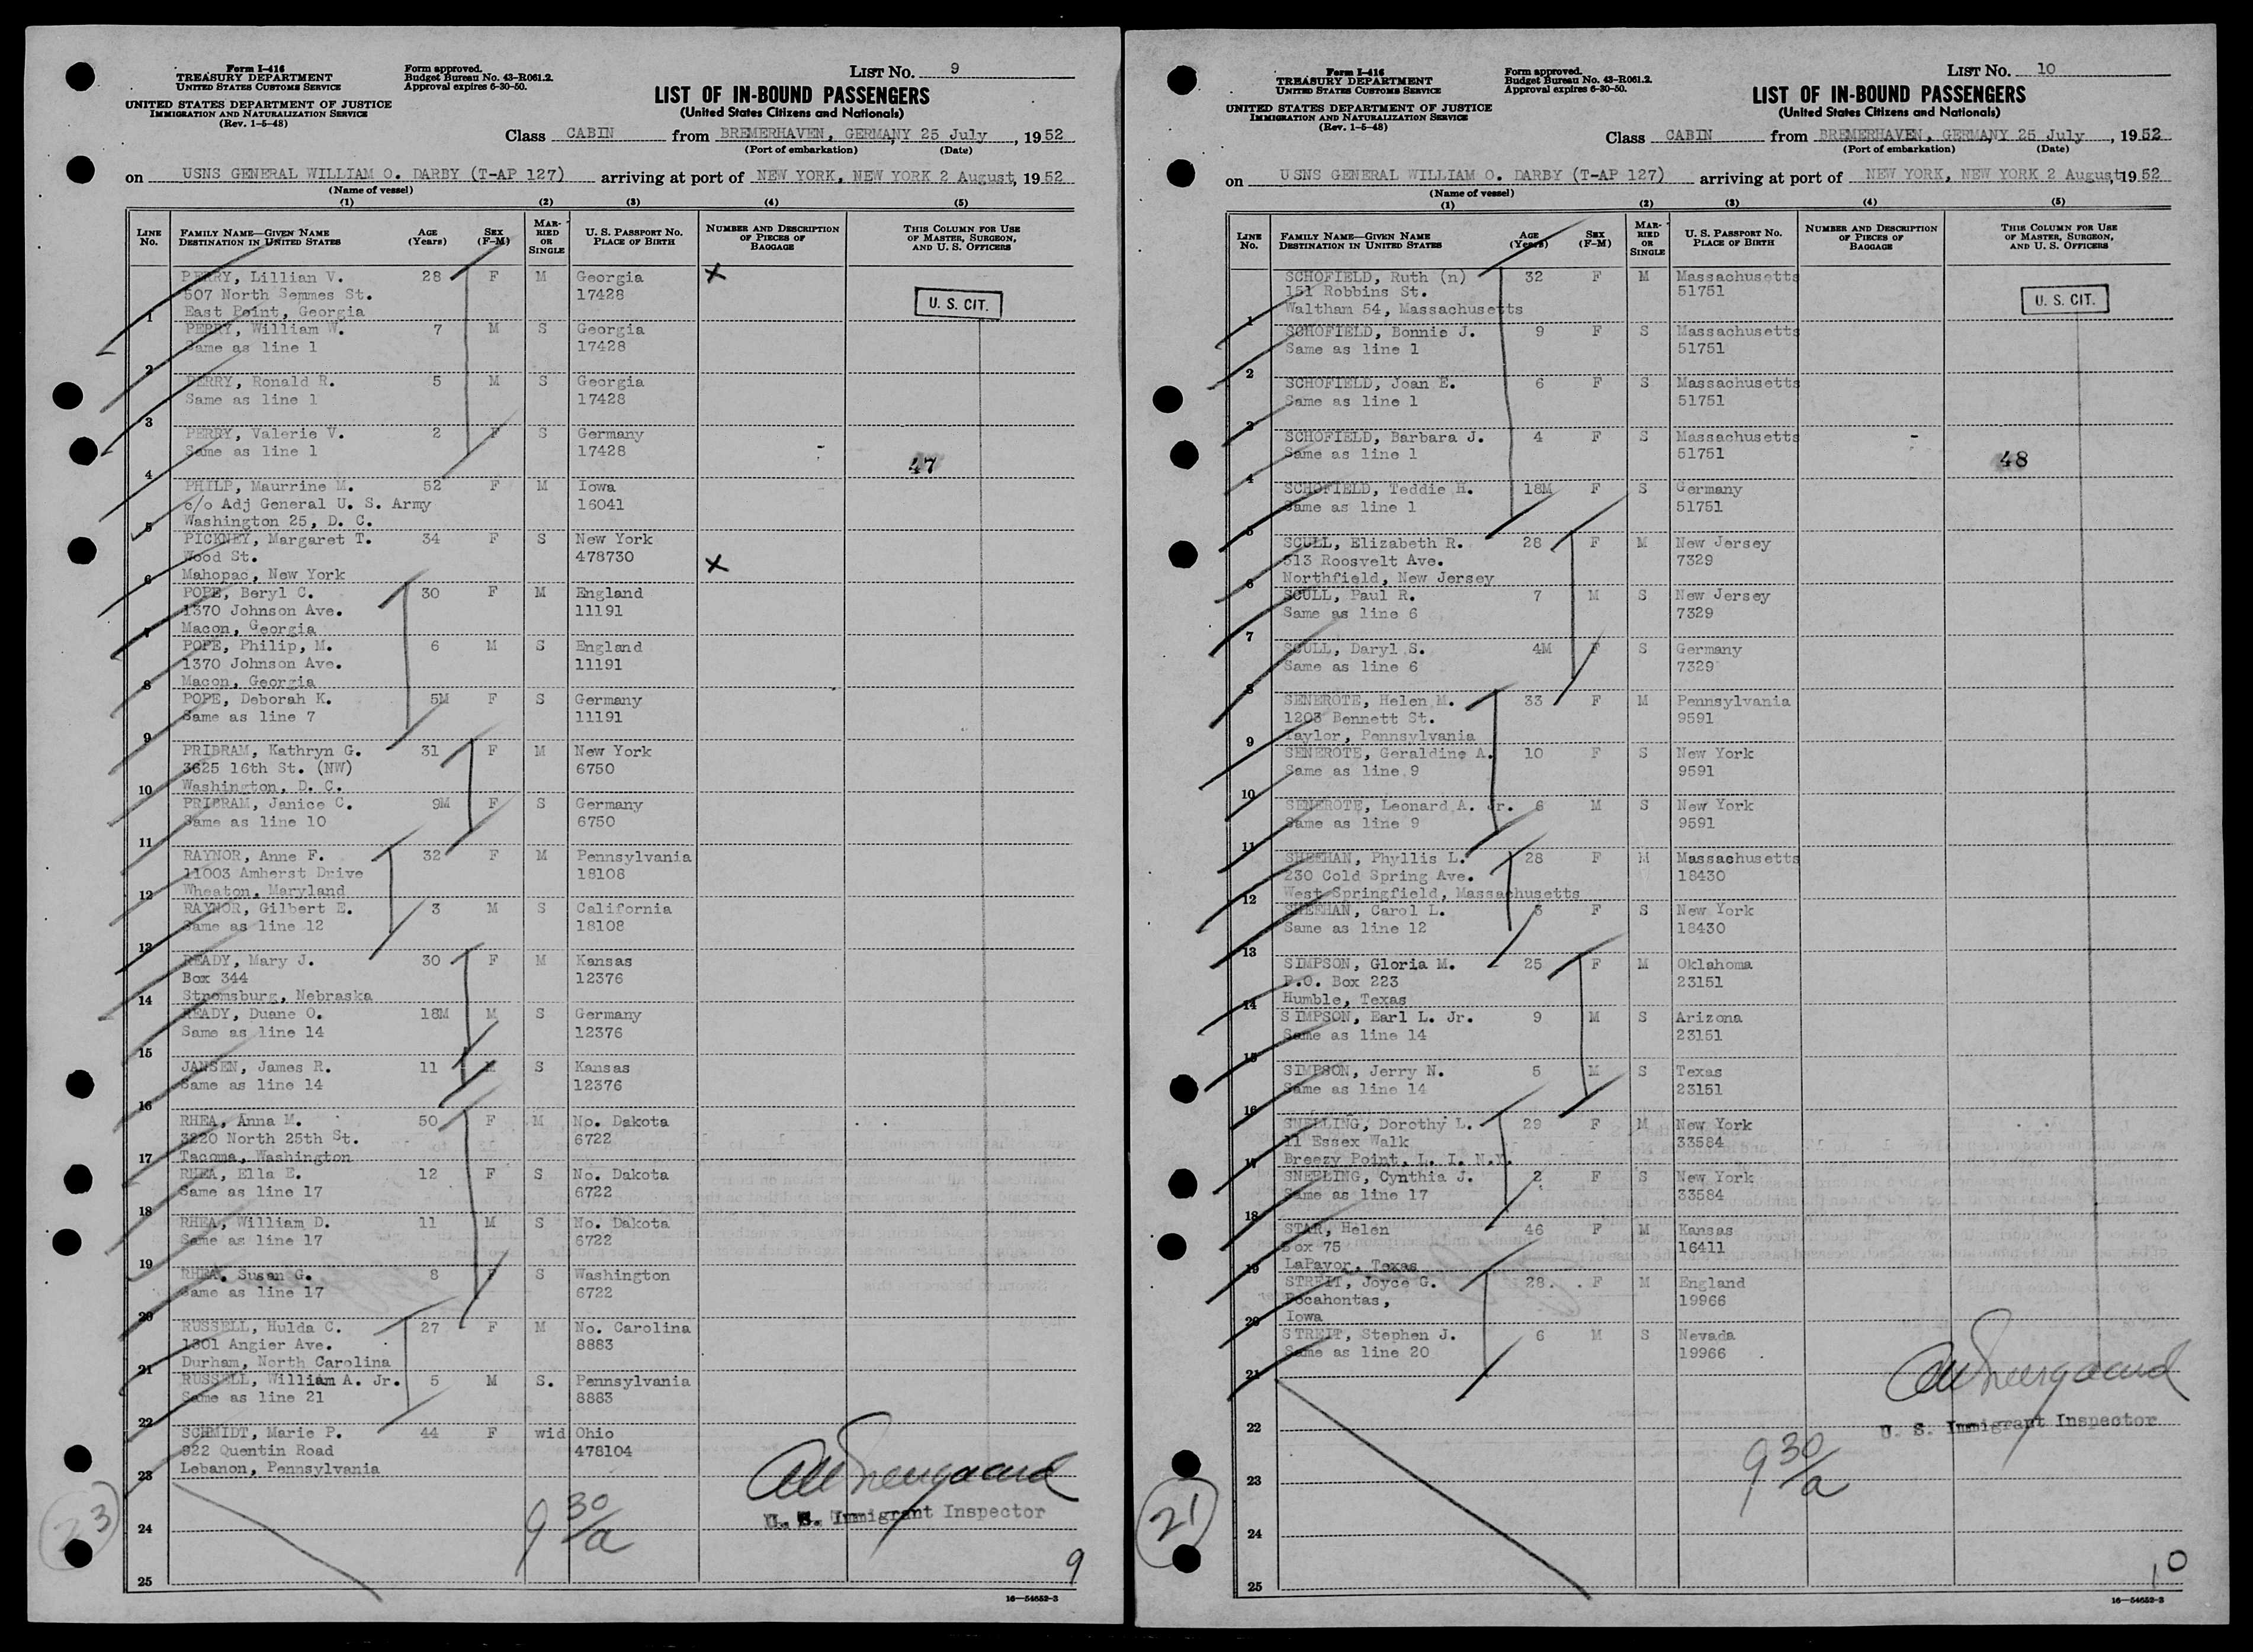 Form I-416
TREASURY DEPARTMENT
UNITED STATES CUSTOMS SERVICE
UNITED STATES DEPARTMENT OF JUSTICE
IMMIGRATION AND NATURALIZATION SERVICE
(Rev. 1-5-48)
Form approved.
Budget Bureau No. 43-R061.2.
Approval expires 6-30-50.
LIST NO. 9
LIST OF IN-BOUND PASSENGERS
(United States Citizens and Nationals)
Class CABIN from BREMERHAVEN, GERMANY, 25 July, 1952
(Port of embarkation) (Date)
on USNS GENERAL WILLIAM O. DARBY (T-AP 127) arriving at port of NEW YORK, NEW YORK 2 August, 1952
(Name of vessel)
(1) (2) (3) (4) (5)
LINE No. FAMILY NAME—GIVEN NAME DESTINATION IN UNITED STATES AGE (Years) SEX (F-M) MARRIED OR SINGLE U. S. PASSPORT NO. PLACE OF BIRTH NUMBER AND DESCRIPTION OF PIECES OF BAGGAGE THIS COLUMN FOR USE OF MASTER, SURGEON, AND U. S. OFFICERS
PERRY, Lillian V. 28 F M Georgia X
507 North Semmes St. 17428 U. S. CIT.
1 East Point, Georgia
PERRY, William W. 7 M S Georgia
Same as line 1 17428
2
PERRY, Ronald R. 5 M S Georgia
Same as line 1 17428
3
PERRY, Valerie V. 2 F S Germany
Same as line 1 17428 47
4
PHILP, Maurrine M. 52 F M Iowa
c/o Adj General U. S. Army 16041
5 Washington 25, D. C.
PICKNEY, Margaret T. 34 F S New York
Wood St. 478730 X
6 Mahopac, New York
POPE, Beryl C. 30 F M England
1370 Johnson Ave. 11191
7 Macon, Georgia
POPE, Philip, M. 6 M S England
1370 Johnson Ave. 11191
8 Macon, Georgia
POPE, Deborah K. 5M F S Germany
Same as line 7 11191
9
PRIBRAM, Kathryn G. 31 F M New York
3625 16th St. (NW) 6750
10 Washington, D. C.
PRIBRAM, Janice C. 9M F S Germany
Same as line 10 6750
11
RAYNOR, Anne F. 32 F M Pennsylvania
11003 Amherst Drive 18108
12 Wheaton, Maryland
RAYNOR, Gilbert E. 3 M S California
Same as line 12 18108
13
READY, Mary J. 30 F M Kansas
Box 344 12376
14 Stromsburg, Nebraska
READY, Duane O. 18M M S Germany
Same as line 14 12376
15
JANSEN, James R. 11 M S Kansas
Same as line 14 12376
16
RHEA, Anna M. 50 F M No. Dakota
3220 North 25th St. 6722
17 Tacoma, Washington
RHEA, Ella E. 12 F S No. Dakota
Same as line 17 6722
18
RHEA, William D. 11 M S No. Dakota
Same as line 17 6722
19
RHEA. Susan G. 8 F S Washington
Same as line 17 6722
20
RUSSELL, Hulda C. 27 F M No. Carolina
1301 Angier Ave. 8883
21 Durham, North Carolina
RUSSELL, William A. Jr. 5 M S. Pennsylvania
Same as line 21 8883
22
SCHMIDT, Marie P. 44 F wid Ohio
922 Quentin Road 478104
23 Lebanon, Pennsylvania
24
25
23
9 30/a
U. S. Immigrant Inspector
9
16—54652-3
Form I-416
TREASURY DEPARTMENT
UNITED STATES CUSTOMS SERVICE
UNITED STATES DEPARTMENT OF JUSTICE
IMMIGRATION AND NATURALIZATION SERVICE
(Rev. 1-5-48)
Form approved.
Budget Bureau No. 43-R061.2.
Approval expires 6-30-50.
LIST NO. 10
LIST OF IN-BOUND PASSENGERS
(United States Citizens and Nationals)
Class CABIN from BREMERHAVEN, GERMANY 25 July, 1952
(Port of embarkation) (Date)
on USNS GENERAL WILLIAM O. DARBY (T-AP 127) arriving at port of NEW YORK, NEW YORK 2 August, 1952
(Name of vessel)
(1) (2) (3) (4) (5)
LINE No. FAMILY NAME—GIVEN NAME DESTINATION IN UNITED STATES AGE (Years) SEX (F-M) MARRIED OR SINGLE U. S. PASSPORT NO. PLACE OF BIRTH NUMBER AND DESCRIPTION OF PIECES OF BAGGAGE THIS COLUMN FOR USE OF MASTER, SURGEON, AND U. S. OFFICERS
SCHOFIELD, Ruth (n) 32 F M Massachusetts
151 Robbins St. 51751 U. S. CIT.
1 Waltham 54, Massachusetts
SCHOFIELD, Bonnie J. 9 F S Massachusetts
Same as line 1 51751
2
SCHOFIELD, Joan E. 6 F S Massachusetts
Same as line 1 51751
3
SCHOFIELD, Barbara J. 4 F S Massachusetts
Same as line 1 51751 48
4
SCHOFIELD, Teddie H. 18M F S Germany
Same as line 1 51751
5
SCULL, Elizabeth R. 28 F M New Jersey
513 Roosvelt Ave. 7329
6 Northfield, New Jersey
SCULL, Paul R. 7 M S New Jersey
Same as line 6 7329
7
SCULL, Daryl S. 4M F S Germany
Same as line 6 7329
8
SENEROTE, Helen M. 33 F M Pennsylvania
1203 Bennett St. 9591
9 Taylor, Pennsylvania
SENEROTE, Geraldine A. 10 F S New York
Same as line 9 9591
10
SENEROTE, Leonard A. Jr. 6 M S New York
Same as line 9 9591
11
SHEEHAN, Phyllis L. 28 F M Massachusetts
230 Cold Spring Ave. 18430
12 West Springfield, Massachusetts
SHEEHAN, Carol L. 3 F S New York
Same as line 12 18430
13
SIMPSON, Gloria M. 25 F M Oklahoma
P.O. Box 223 23151
14 Humble, Texas
SIMPSON, Earl L. Jr. 9 M S Arizona
Same as line 14 23151
15
SIMPSON, Jerry N. 5 M S Texas
Same as line 14 23151
16
SNELLING, Dorothy L. 29 F M New York
11 Essex Walk 33584
17 Breezy Point, L. I. N.Y.
SNELLING, Cynthia J. 2 F S New York
Same as line 17 33584
18
STAR, Helen 46 F M Kansas
Box 75 16411
19 LaPavor, Texas
STREIT, Joyce G. 28 F M England
Pocahontas, 19966
20 Iowa
STREIT, Stephen J. 6 M S Nevada
Same as line 20 19966
21
22
23
24
25
21
9 30/a
U. S. Immigrant Inspector
10
16—54652-3